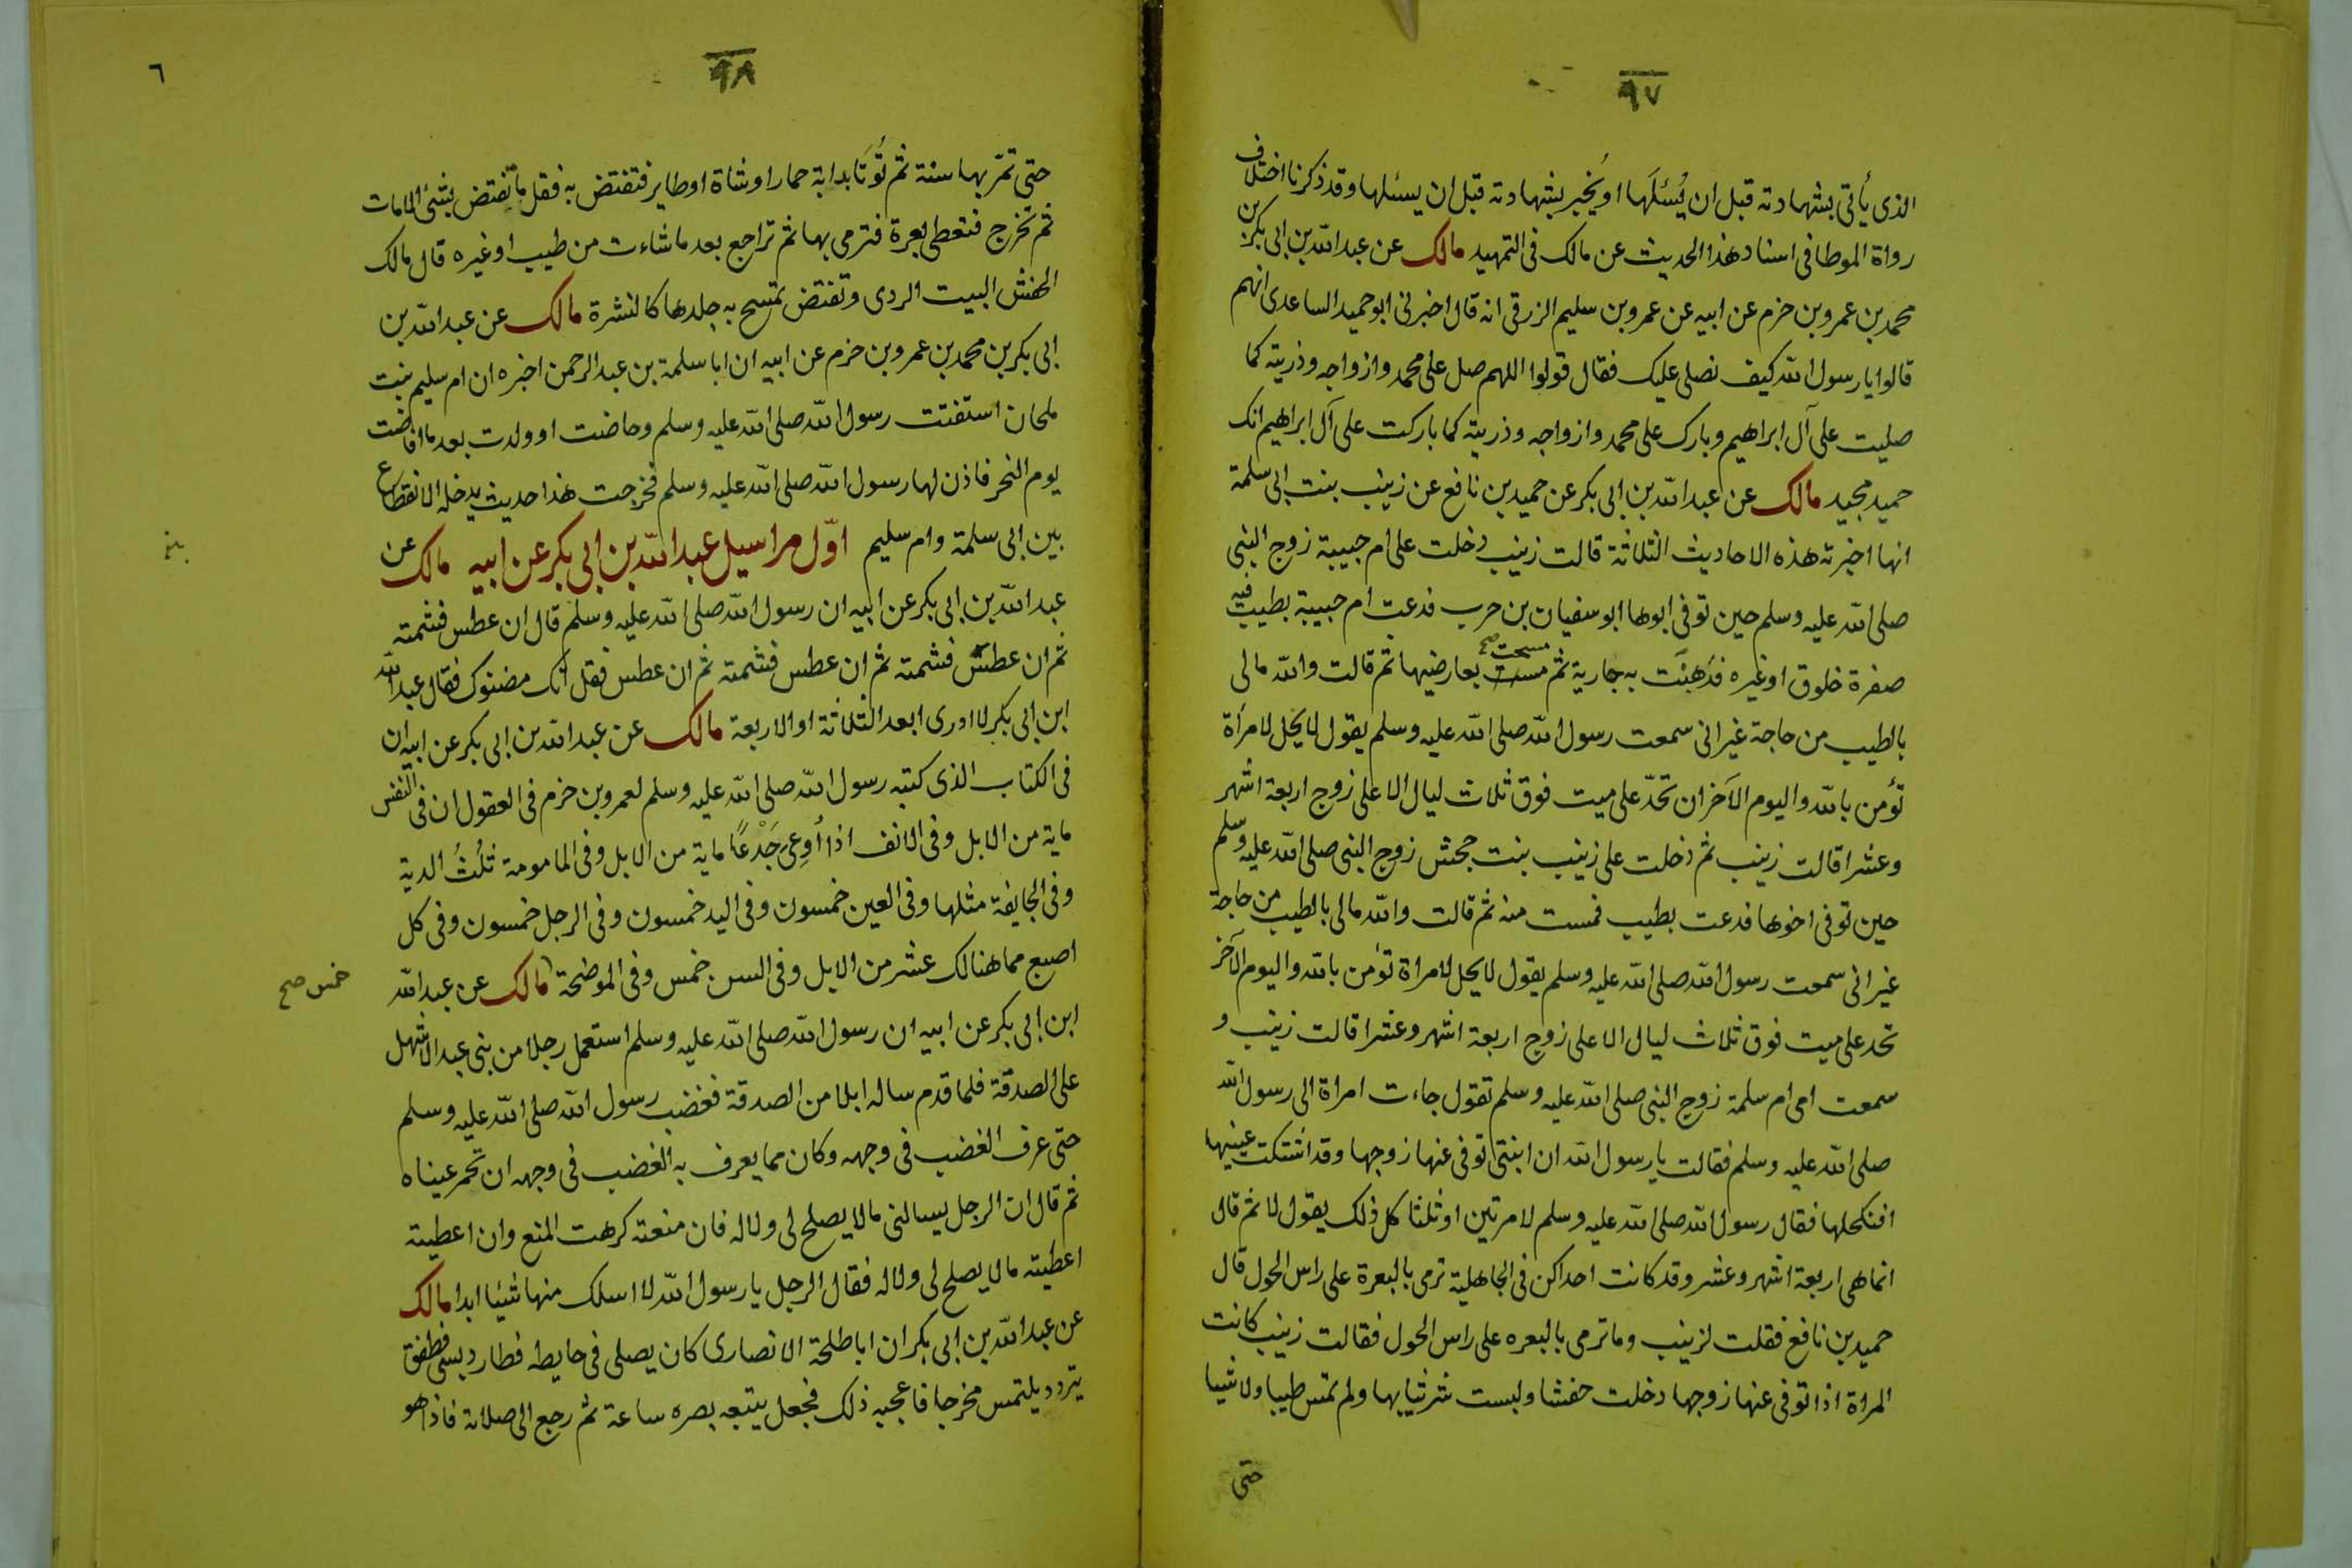 ٩٧
الذى يأتى بشهادته قبل ان يُسئلَها او يُخبر بشهادته قبل ان يسئلها وقد ذكرنا اختلاف
رواة الموطا فى اسناد هذا الحديث عن مالك فى التمهيد مالك عن عبد الله بن ابى بكر بن
محمد بن عمرو بن حزم عن ابيه عن عمرو بن سليم الزرقى انه قال اخبرنى ابو حميد الساعدى انهم
قالوا يا رسول الله كيف نصلى عليك فقال قولوا اللهم صل على محمد وازواجه وذريته كما
صليت على آل ابراهيم وبارك على محمد وازواجه وذريته كما باركت على آل ابراهيم انك
حميد مجيد مالك عن عبد الله بن ابى بكر عن حميد بن نافع عن زينب بنت ابى سلمة
انها اخبرته هذه الاحاديث الثلاثة قالت زينب دخلت على ام حبيبة زوج النبى
صلى الله عليه وسلم حين توفى ابوها ابو سفيان بن حرب فدعت ام حبيبة بطيب فيه
صفرة خلوق او غيره فدَهَنَت به جارية ثم مست مسحت صح بعارضيها ثم قالت والله مالى
بالطيب من حاجة غير انى سمعت رسول الله صلى الله عليه وسلم يقول لا يحل لامرأة
تؤمن بالله واليوم الآخر ان تحدّ على ميت فوق ثلاث ليال الا على زوج اربعة اشهر
وعشرا قالت زينب ثم دخلت على زينب بنت جحش زوج النبى صلى الله عليه وسلم
حين توفى اخوها فدعت بطيب فمست منه ثم قالت والله مالى بالطيب من حاجة
غير انى سمعت رسول الله صلى الله عليه وسلم يقول لا يحل لامراة تؤمن بالله واليوم الآخر
تحد على ميت فوق ثلاث ليال الا على زوج اربعة اشهر وعشرا قالت زينب و
سمعت امى ام سلمة زوج النبى صلى الله عليه وسلم تقول جاءت امراة الى رسول الله
صلى الله عليه وسلم فقالت يا رسول الله ان ابنتى توفى عنها زوجها وقد اشتكت عينيها
افنكحلها فقال رسول الله صلى الله عليه وسلم لا مرتين او ثلثا كل ذلك يقول لا ثم قال
انما هى اربعة اشهر وعشر وقد كانت احداكن فى الجاهلية ترمى بالبعرة على راس الحول قال
حميد بن نافع فقلت لزينب وما ترمى بالبعره على راس الحول فقالت زينب كانت
المراة اذا توفى عنها زوجها دخلت حفشا ولبست شر ثيابها ولم تمس طيبا ولا شيا
حتى
٩٨
٦
حتى تمرّ بها سنة ثم تُوتَا بدابة حمار او شاة او طاير فتفتض به فقل ما تفتض بشئ الا مات
ثم تخرج فتعطى بعرة فترمى بها ثم تراجع بعد ما شاءت من طيب او غيره قال مالك
الحفش البيت الردى وتفتض تمسح به جلدها كالنشرة مالك عن عبد الله بن
ابى بكر بن محمد بن عمرو بن حزم عن ابيه ان ابا سلمة بن عبد الرحمن اخبره ان ام سليم بنت
ملحان استفتت رسول الله صلى الله عليه وسلم وحاضت او ولدت بعد ما افاضت
يوم النحر فاذن لها رسول الله صلى الله عليه وسلم فخرجت هذا حديث يدخله الانقطاع
بين ابى سلمة وام سليم اوّل مراسيل عبد الله بن ابى بكر عن ابيه مالك عن
عبد الله بن ابى بكر عن ابيه ان رسول الله صلى الله عليه وسلم قال ان عطس فشمته
ثم ان عطس فشمته ثم ان عطس فشمته ثم ان عطس فقل انك مضنوك فقال عبد الله
ابن ابى بكر لا ادرى ابعد الثلاثة او الاربعة مالك عن عبد الله بن ابى بكر عن ابيه ان
فى الكتاب الذى كتبه رسول الله صلى الله عليه وسلم لعمرو بن حزم فى العقول ان فى النفس
ماية من الابل وفى الانف اذا أُوعِىَ جَدْعًا ماية من الابل وفى المامومة ثلُثُ الدية
وفى الجايفة مثلها وفى العين خمسون وفى اليد خمسون وفى الرجل خمسون وفى كل
اصبع مما هنالك عشر من الابل وفى السن خمس وفى الموضحة مالك عن عبد الله
خمس صح
ابن ابى بكر عن ابيه ان رسول الله صلى الله عليه وسلم استعمل رجلا من بنى عبد الاشهل
على الصدقة فلما قدم ساله ابلا من الصدقة فغضب رسول الله صلى الله عليه وسلم
حتى عرف الغضب فى وجهه وكان مما يعرف به الغضب فى وجهه ان تحمر عيناه
ثم قال ان الرجل يسالنى ما لا يصلح لى ولا له فان منعته كرهت المنع وان اعطيته
اعطيته ما لا يصلح لى ولا له فقال الرجل يا رسول الله لا اسلك منها شيئا ابدا مالك
عن عبد الله بن ابى بكر ان ابا طلحة الانصارى كان يصلى فى حايطه فطار دبسى فطفق
يتردد يلتمس مخرجا فاعجبه ذلك فجعل يتبعه بصره ساعة ثم رجع الى صلاته فاذا هو